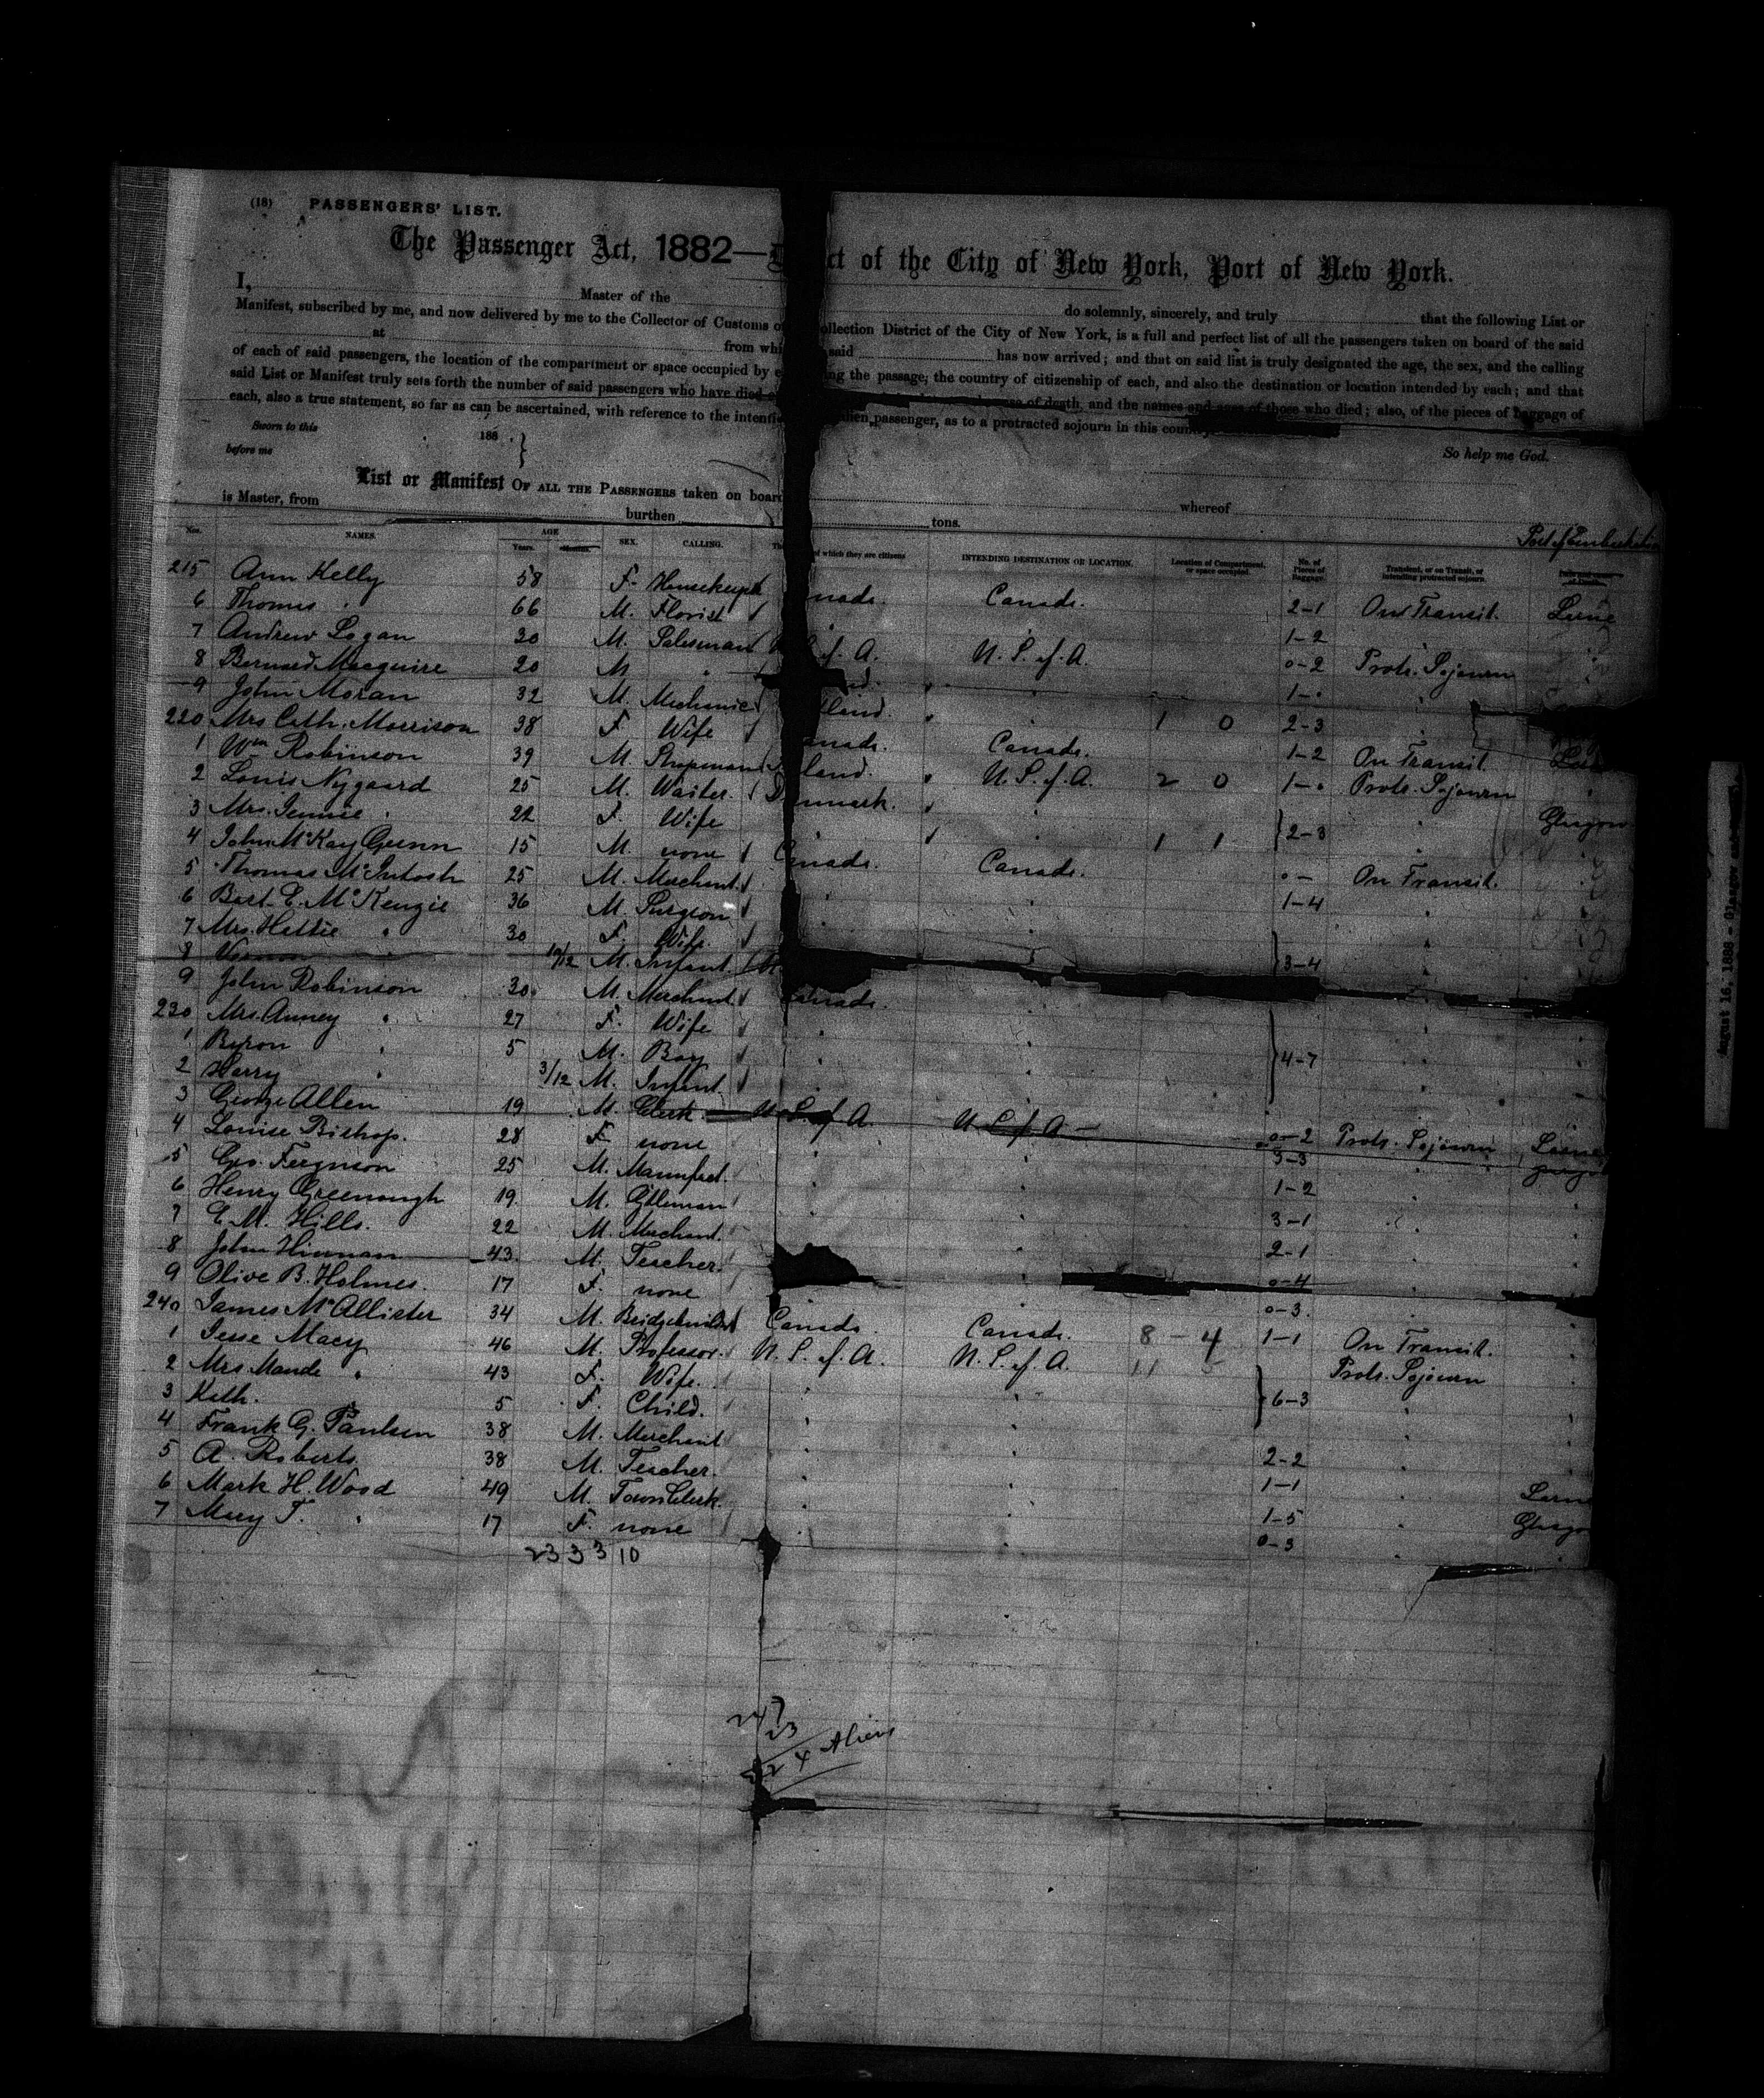 (18) PASSENGERS' LIST.
The Passenger Act, 1882— ct of the City of New York, Port of New York.
I, Master of the do solemnly, sincerely, and truly that the following List or
Manifest, subscribed by me, and now delivered by me to the Collector of Customs of ollection District of the City of New York, is a full and perfect list of all the passengers taken on board of the said
at from whi said has now arrived; and that on said list is truly designated the age, the sex, and the calling
of each of said passengers, the location of the compartment or space occupied by e ing the passage, the country of citizenship of each, and also the destination or location intended by each; and that
said List or Manifest truly sets forth the number of said passengers who have died of death, and the names and ages of those who died; also, of the pieces of baggage of
each, also a true statement, so far as can be ascertained, with reference to the intenti lien passenger, as to a protracted sojourn in this country.
Sworn to this 188 .
before me So help me God.
List or Manifest OF ALL THE PASSENGERS taken on board whereof
is Master, from burthen tons.
Nos. NAMES. AGE Years. Months. SEX. CALLING. of which they are citizens INTENDING DESTINATION OR LOCATION. Location of Compartment, or space occupied. No. of Pieces of Baggage. Transient, or on Transit, or intending protracted sojourn. Port of Embarkation
215 Ann Kelly 58 F. Housekeeper nada. Canada. 2-1 On Transit. Larne
6 Thomas " 66 M. Florist " " 1-2 " "
7 Andrew Logan 30 M. Salesman of A. U.S. of A. 0-2 Protr. Sojourn "
8 Bernard Macguire 20 M " " 1-"
9 John Moran 32 M. Mechanic land. " 1 0 2-3 "
220 Mrs Cath. Morrison 38 F. Wife anada. Canada. 1-2 On Transit.
1 Wm Robinson 39 M. land. U.S. of A. 2 0 1-" Protr. Sojourn "
2 Louis Nygaard 25 M. Waiter. D nmark. " Glasgow
3 Mrs. Jennie " 22 F. Wife " " 1 1 }2-3 " "
4 John McKay Gunn 15 M. none Canada. Canada. 0- On Transit. "
5 Thomas McIntosh 25 M. Merchant. " " 1-4 " "
6 Bart. E. McKenzie 36 M. Surgeon " "
7 Mrs. Hettie " 30 F. Wife " }3-4 "
8 Vernon 10/12 M. Infant "
9 John Robinson 30 M. Merchant Canada. "
230 Mrs. Anney " 27 F. Wife " "
1 Byron " 5 M. Boy " " }4-7 "
2 Harry " 3/12 M. Infant " "
3 George Allen 19 M. Clerk U.S. of A. U.S. of A. 0-2 Protr. Sojourn Larne
4 Louise Bishop. 28 F. none " " 3-3 "
5 Geo. Ferguson 25 M. Manufact. " " 1-2 "
6 Henry Greenough 19. M. Gtleman " " 3-1 "
7 E. M. Hills. 22 M. Merchant. " 2-1 "
8 John Hinman 43. M. Teacher. " 0-4 "
9 Olive B. Holmes. 17 F. none 0-3 "
240 James McAllister 34 M. Bridgebuilder Canada. Canada. 8 - 4 1-1 On Transit. "
1 Jesse Macy 46 M. Professor. U.S. of A. U.S. of A. 11 Protr. Sojourn "
2 Mrs Maude " 43 F. Wife. " " }6-3 "
3 Kath. 5 F. Child. " " "
4 Frank G. Paulsen 38 M. Merchant " " 2-2 " "
5 A. Roberts 38 M. Teacher. " " 1-1 " Larne
6 Mark H. Wood 49 M. Town Clerk. " " 1-5 " Glasgow
7 Mary T. " 17 F. none " " 0-3 "
23 3 3 10
247
23
224 Aliens
August 16, 1888 - Glasgow and